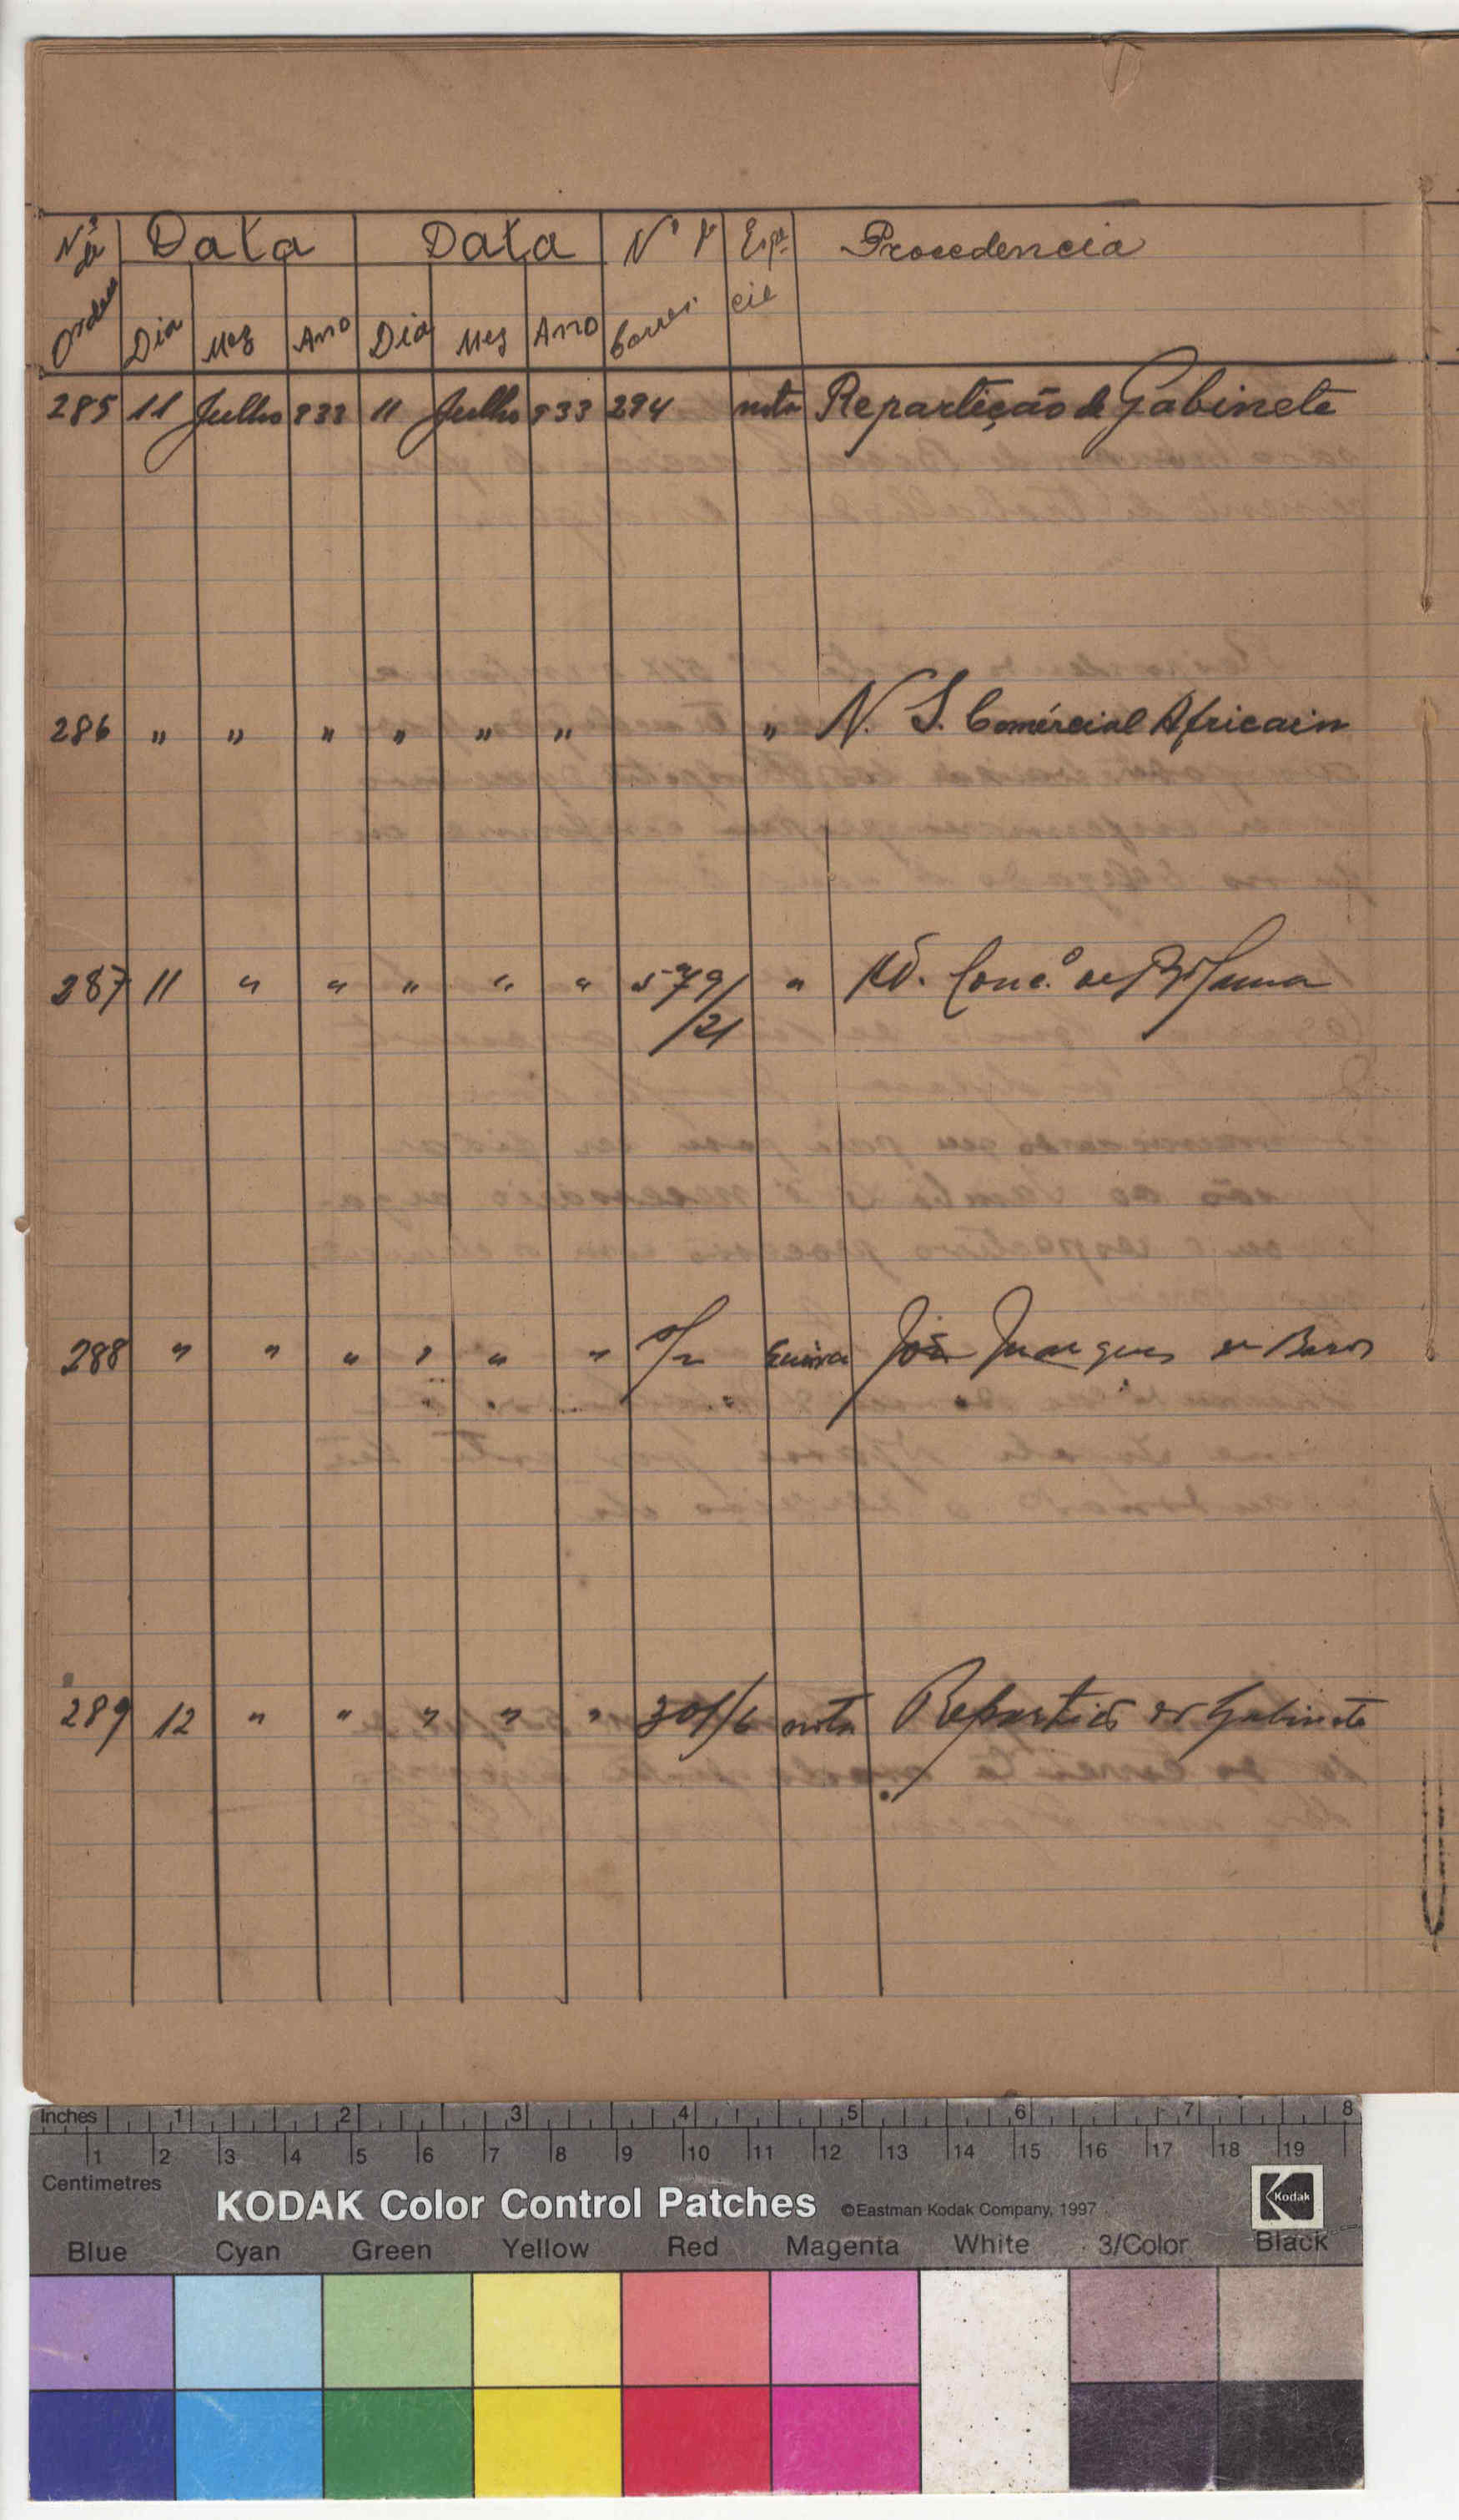 Nº de Ordem Data Data Nº Corres. Espe- cie Procedencia
Dia Mez Ano Dia Mez Ano
285 11 Julho 933 11 Julho 933 294 nota Repartição de Gabinete
286 " " " " " " " N. S. Comércial Africain
287 11 " " " " " 579/ " Ad. Conc.º de
/21
288 " " " " " " João Marques de Barros
289 12 " " " " " 301/6 nota Repartição do Gabinete
Inches 1 2 3 4 5 6 7 8
1 2 3 4 5 6 7 8 9 10 11 12 13 14 15 16 17 18 19
Centimetres
KODAK Color Control Patches ©Eastman Kodak Company, 1997 Kodak
Blue Cyan Green Yellow Red Magenta White 3/Color Black